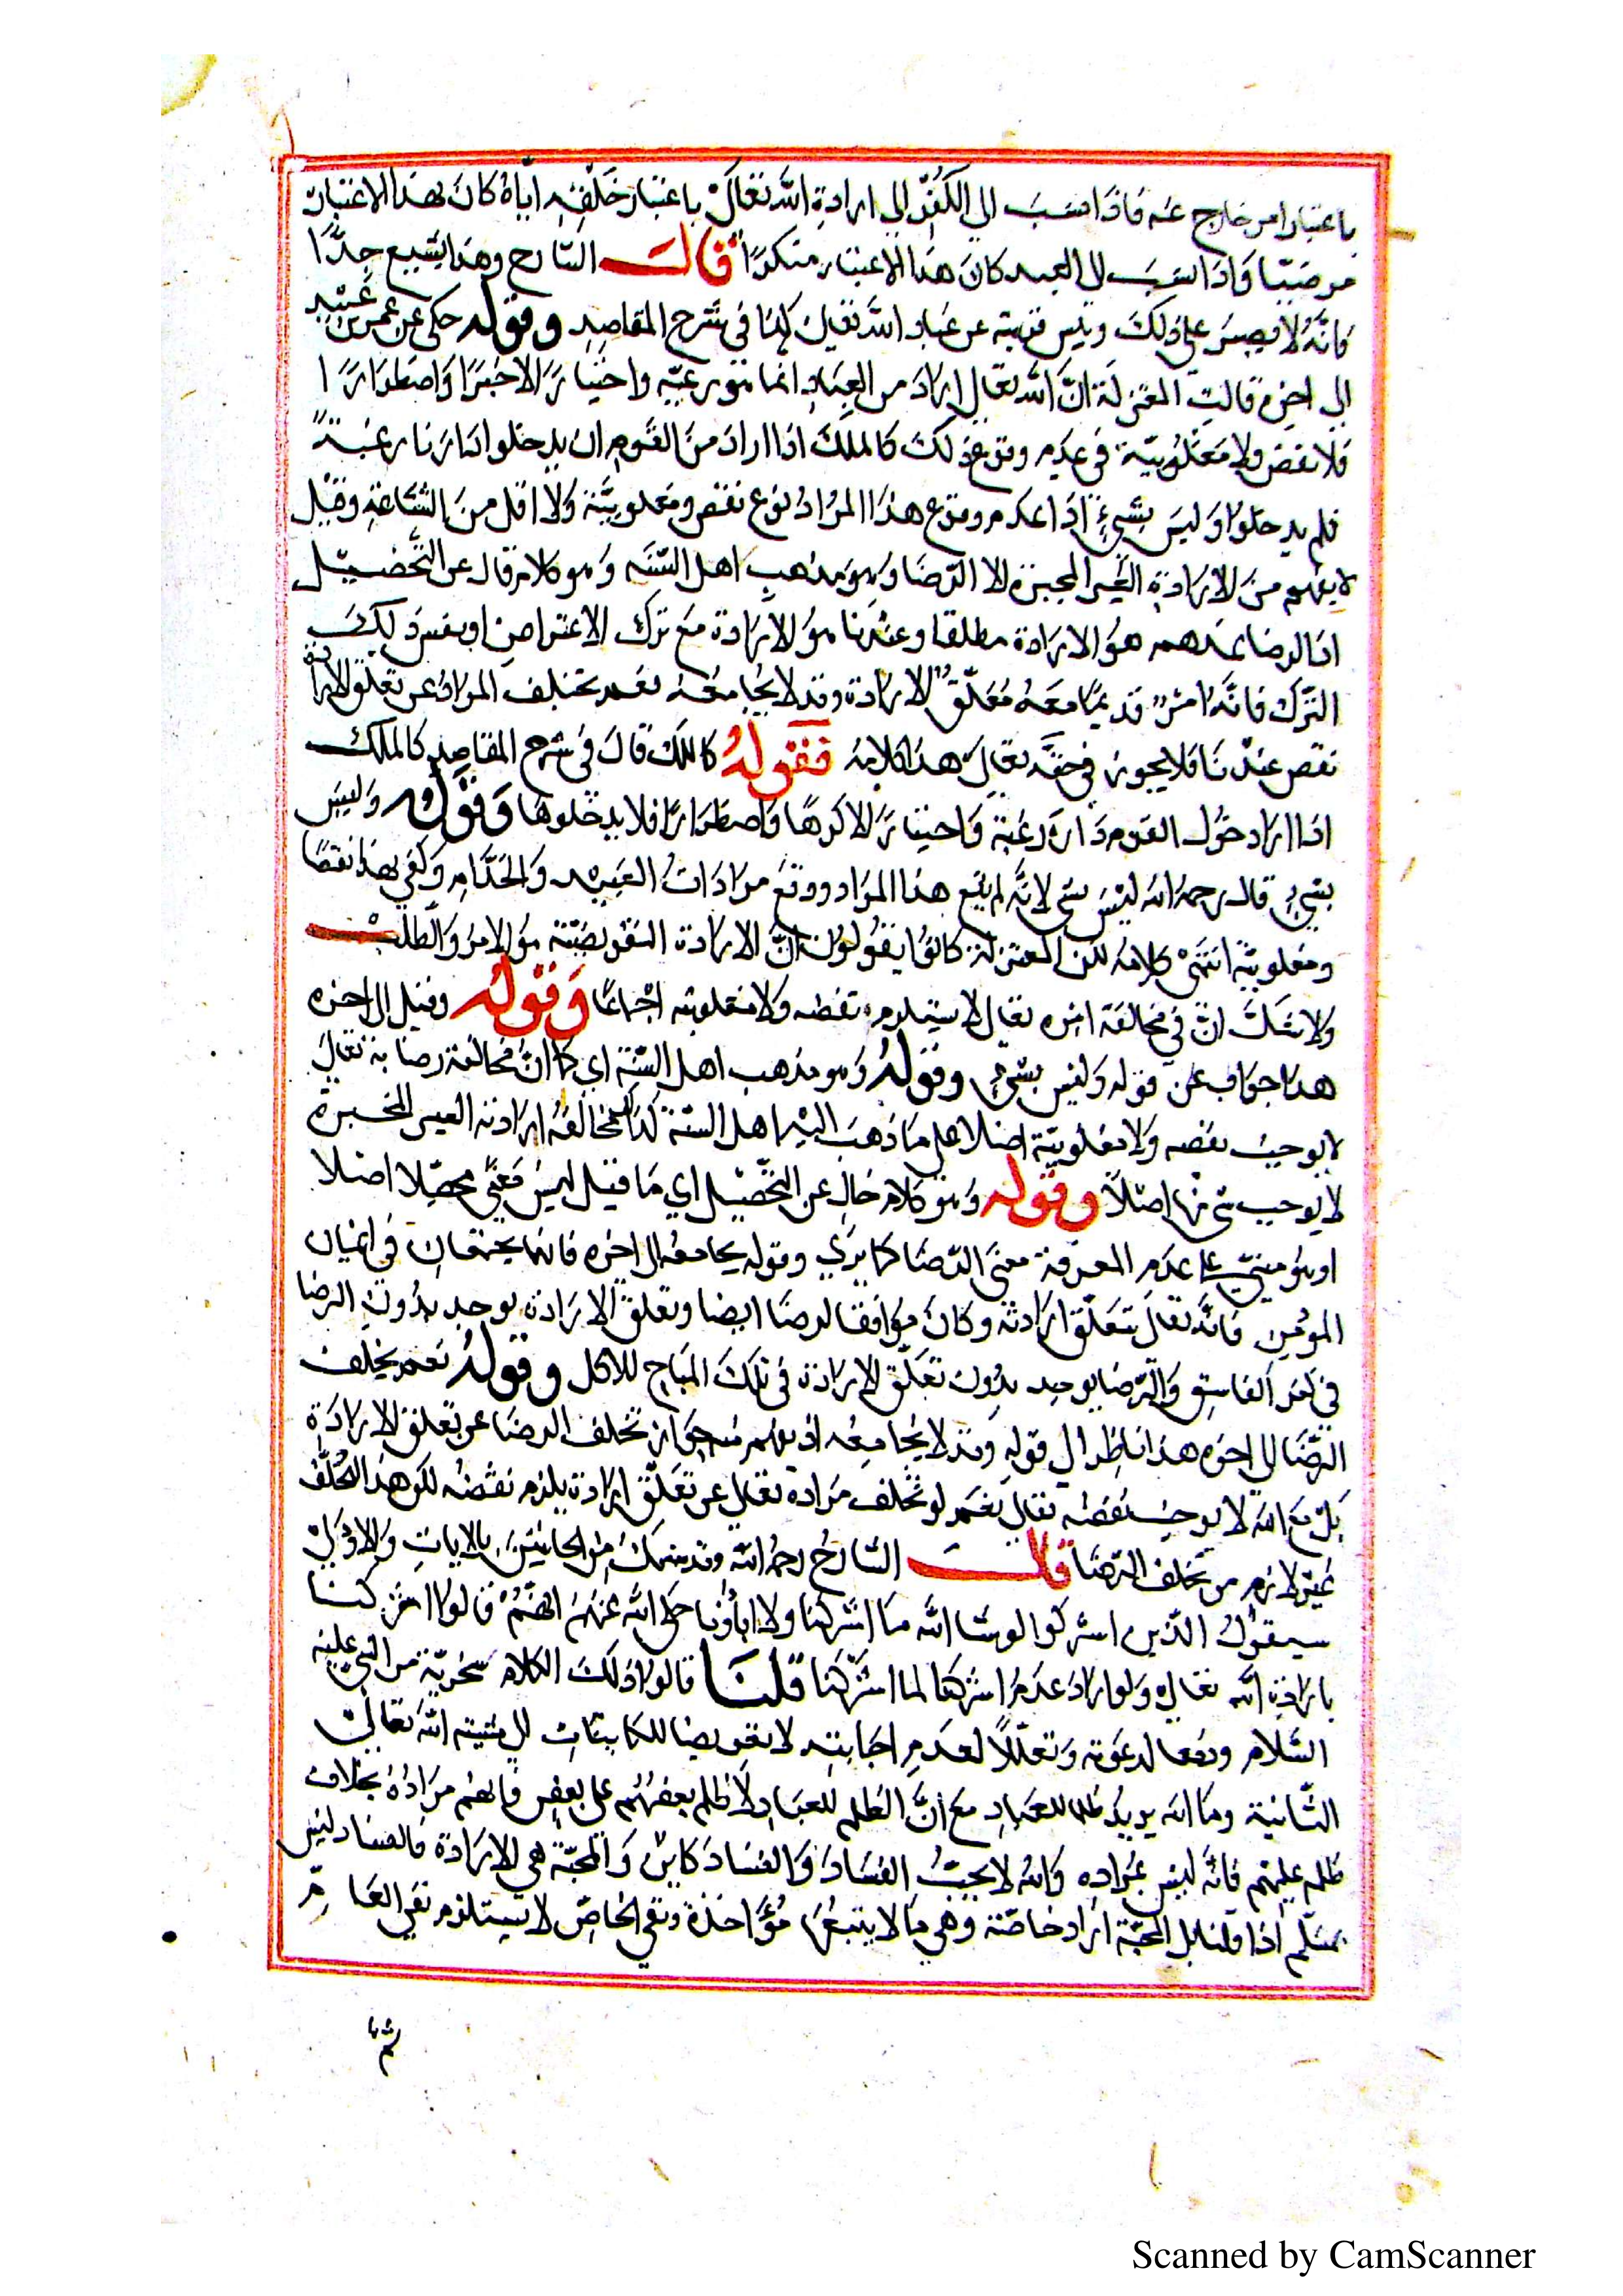 باعتبار امر خارج عنه فاذا نسب الى الكفر الى ارادة الله تعالى باعتبار خلقه اياه كان بهذا الاعتبار
مرضيا واذا نسب الى العبد كان هذا الاعتبار منكرا قال الشارح وهذا شنيع جدا
فانه لا يصبر على ذلك رئيس قرية عن عباد الله تعالى كذا فى شرح المقاصد وقوله حكى عن عمرو بن عبيد
الى اخره قالت المعتزلة ان الله تعالى اراد من العباد انما هو رغبة واختيارا لا جبرا واضطرارا
فلا نقص ولا مغلوبية فى عدم وقوع ذلك كالملك اذا اراد من القوم ان يدخلوا دارنا رغبة
فلم يدخلوا وليس بشىء اذا عدم وقوع هذا المراد نوع نقص ومغلوبية ولا اقل من الشناعة وقيل
لا يفهم من الارادة الغير المجبرة الا الرضا وهو مذهب اهل السنة وهو كلام خال عن التحصيل
اذ الرضا عندهم هو الارادة مطلقا وعندنا هو الارادة مع ترك الاعتراض او نفس ذلك
الترك فانه امر قد يجامعه معلق الارادة وقد لا يجامعه نعم تخلف المراد عن تعلق الارادة
نقص عندنا فلا يجوز فى حقه تعالى هذا كلامه فقوله كالملك قال فى شرح المقاصد كالملك
اذا اراد دخول القوم داره رغبة واختيارا لا كرها واضطرارا فلا يدخلوها وقوله وليس
بشىء قال رحمه الله ليس بشىء لانه لم يقع هذا المراد ووقع مرادات العبيد والخدام وكفى بهذا نقصا
ومغلوبية انتهى كلامه لكن المعتزلة كانوا يقولون ان الارادة التفويضية هو الامر والطلب
ولا شك ان فى مخالفة امره تعالى لا يستلزم نقصه ولا مغلوبيته اجماعا وقوله وقيل الى اخره
هذا جواب عن قوله وليس بشىء وقوله وهو مذهب اهل السنة اى كما ان مخالفة رضا به تعالى
لا يوجب نقصه ولا مغلوبية اصلا على ما ذهب اليه اهل السنة كذلك مخالفة ارادته الغير المجبرة
لا يوجب شىء منها اصلا وقوله وهو كلام خال عن التحصيل اى ما قيل ليس معنى محصلا اصلا
او هو مبنى على عدم المعرفة معنى الرضا كما يرى وقوله يجامعه الى اخره فانهما يجتمعان فى ايمان
المؤمن فانه تعالى تتعلق ارادته وكان موافقا لرضا ايضا وتعلق الارادة يوجد بدون الرضا
فى كفر الفاسق والرضا يوجد بدون تعلق الارادة فى تلك المباح للاكل وقوله نعم يخلف
الرضا الى اخره هذا ناظر الى قوله وقد لا يجامعه اذ يفهم منه جواز تخلف الرضا عن تعلق الارادة
بل مع انه لا يوجب نقصه تعالى نعم لو تخلف مراده تعالى عن تعلق ارادته يلزم نقصه لكن هذا التخلف
غير لازم من تخلف الرضا قال الشارح رحمه الله وقد يتمسك من الجانبين بالايات والاولى
سيقول الذين اشركوا لو شا الله ما اشركنا ولا اباؤنا حكى الله عنهم انهم قالوا اشركنا
بارادة الله تعالى ولو اراد عدم اشركنا لما اشركنا قلنا قالوا ذلك الكلام سخرية من النبى عليه
السلام ودفعا لدعوته وتعللا لعدم اجابته لا تفويضا للكاينات الى مشيته الله تعالى
الثانية وما الله يريد ظلما للعباد مع ان الظلم للعباد لا ظلم بعضهم على بعض فانهم مراده بخلاف
ظلمه عليهم فانه ليس بمراده والله لا يحب الفساد والفساد كاين والمحبة هى الارادة فالفساد ليس
بمسلم اذا قلنا بل المحبة اراد خاصة وهى ما لا يتبعها مؤاخذة ونفى الخاص لا يستلزم نفى العام
Scanned by CamScanner